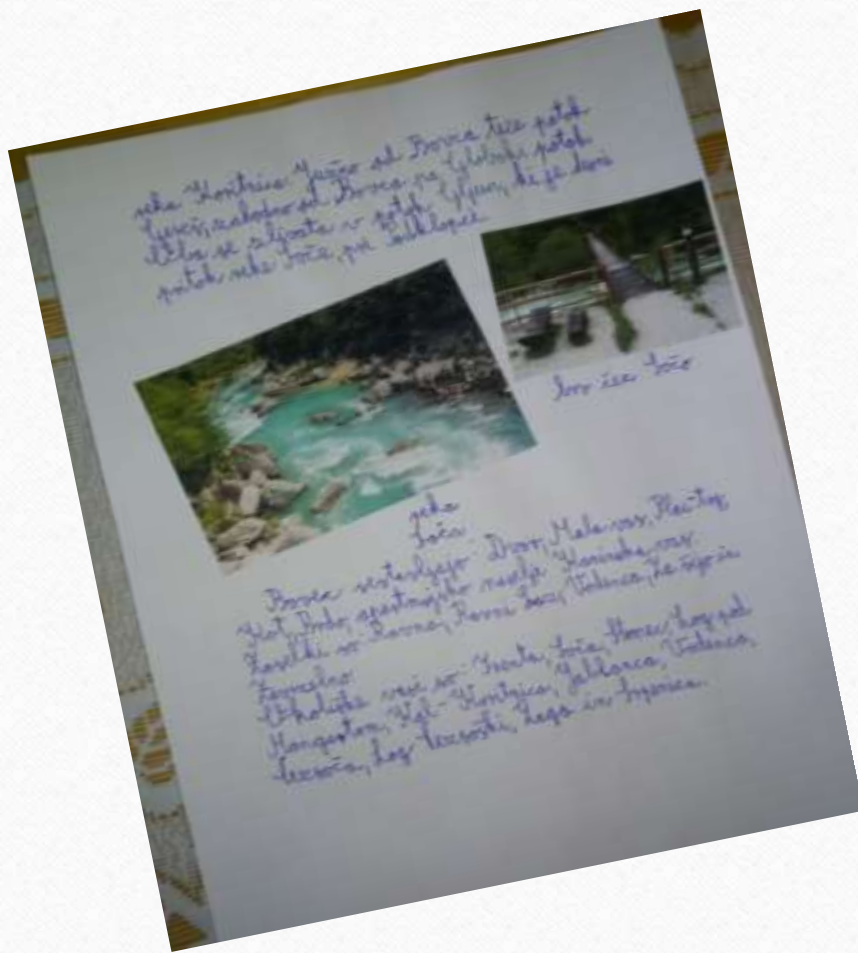 reka Koritnica. Južno od Bovca teče potok
zahodno od Bovca, pa Globoki potok.
Oba se zlivata v potok Gljun, ki je desni
pritok reke Soče, pri Podklopci.
čez Sočo
reka
Soča
Bovec sestavljajo Dvor, Mala vas,
Kot, Brdo, apartmajsko naselje Kaninska vas.
Zaselki so Ravne, Ravni Laz, Vodenca,
Okoliške vasi so Trenta, Soča, Strmec, Log pod
Mangartom, Kal-Koritnica, Jablanca, Vodenca,
Čezsoča, Log Čezsoški, Žaga in Srpenica.